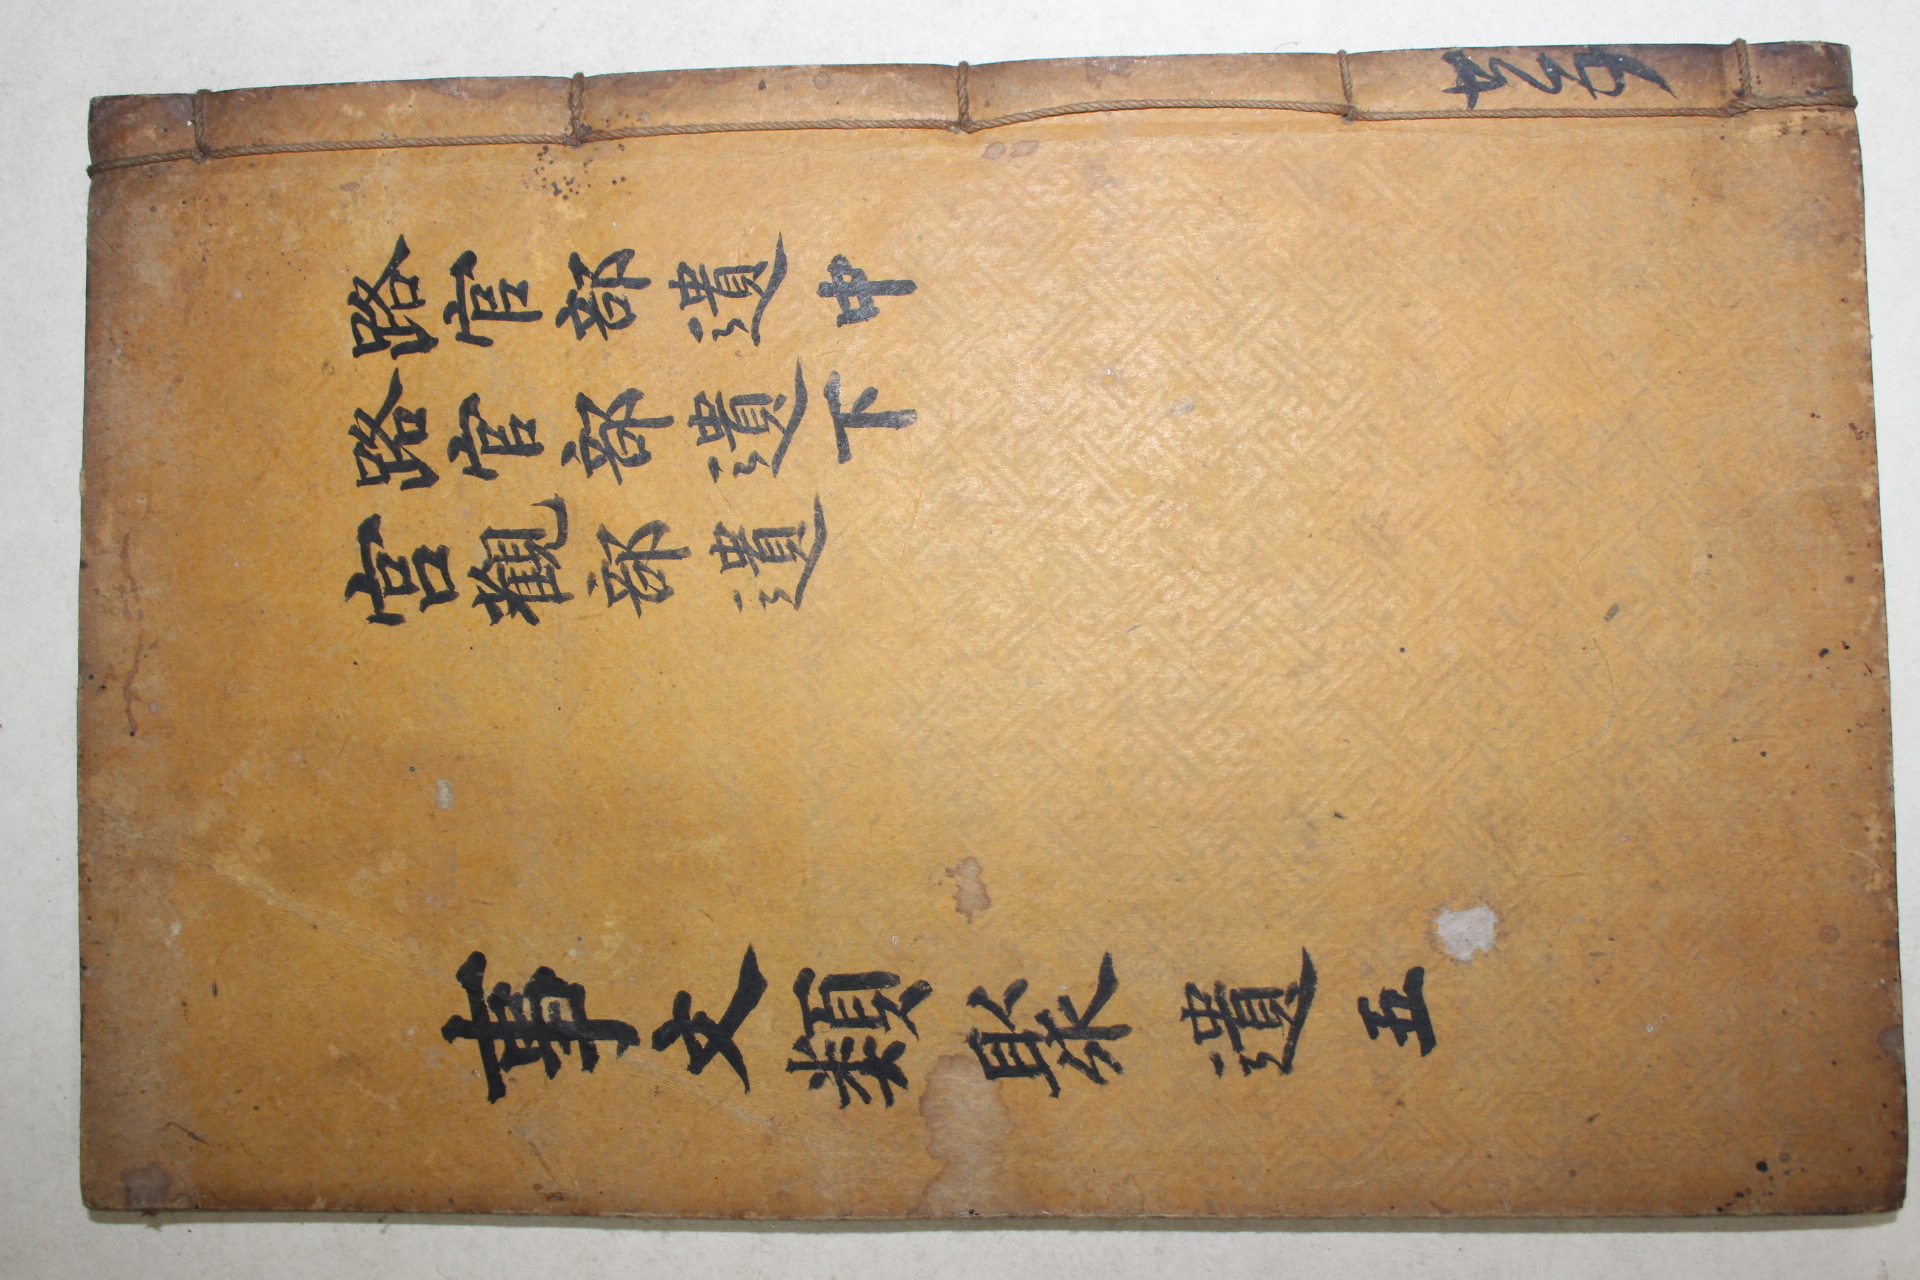 路官部遺中
路官部遺下
宮觀部遺
事文類聚遺 五
共五